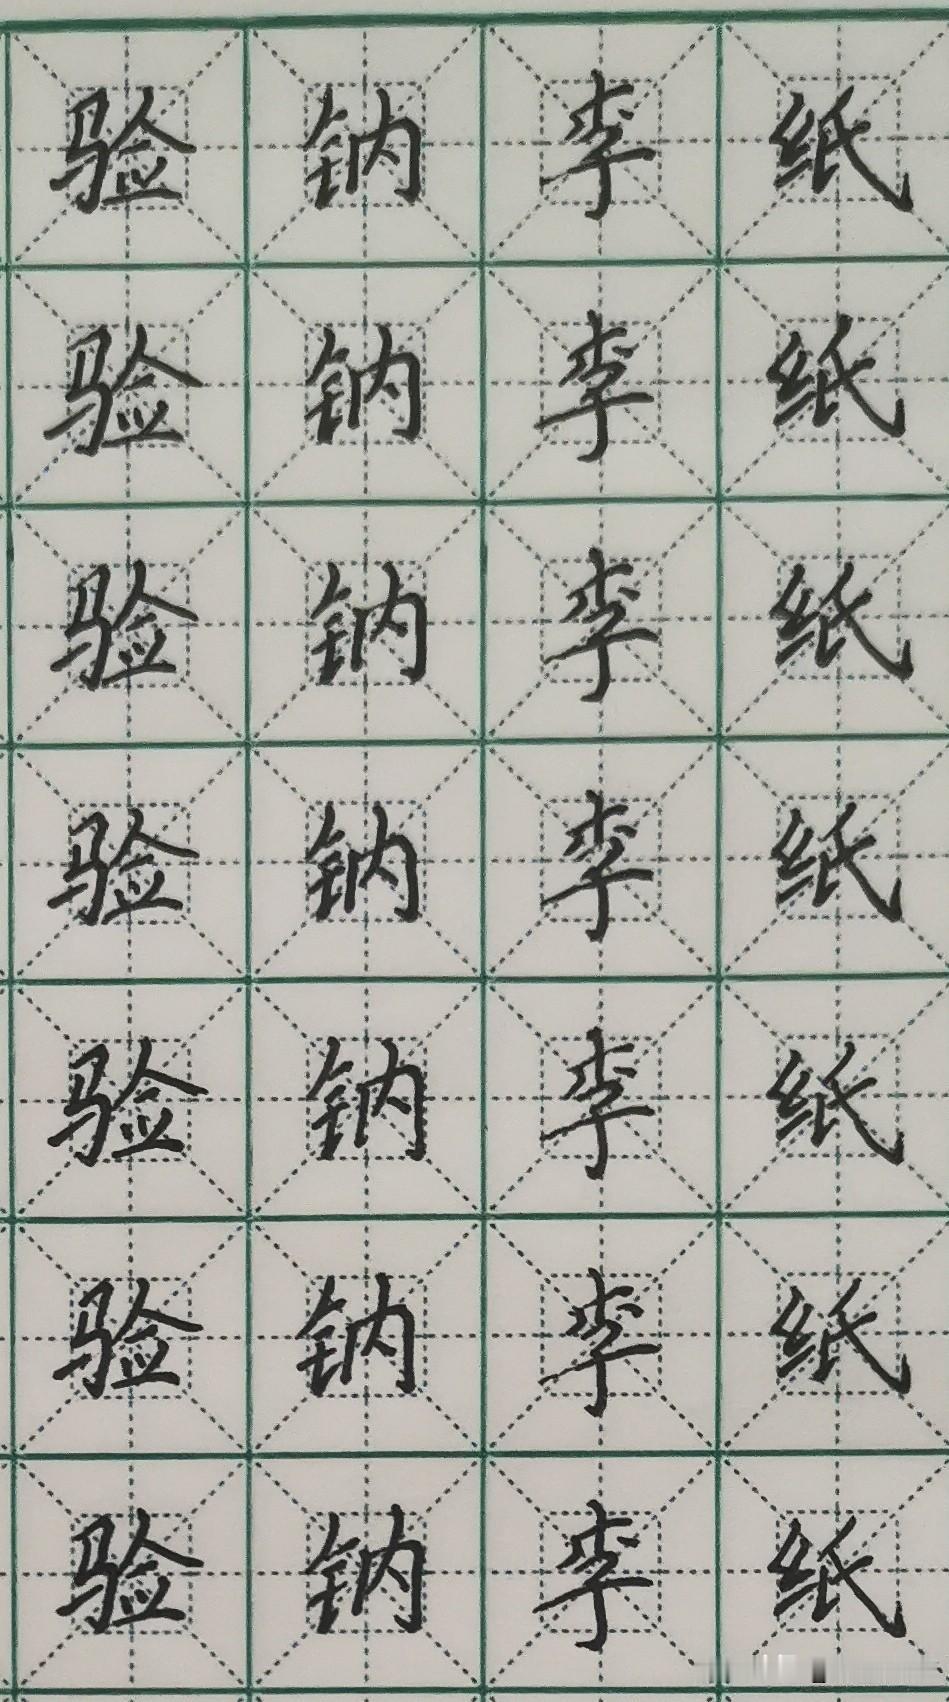 验钠李纸
验钠李纸
验钠李纸
验钠李纸
验钠李纸
验钠李纸
验钠李纸